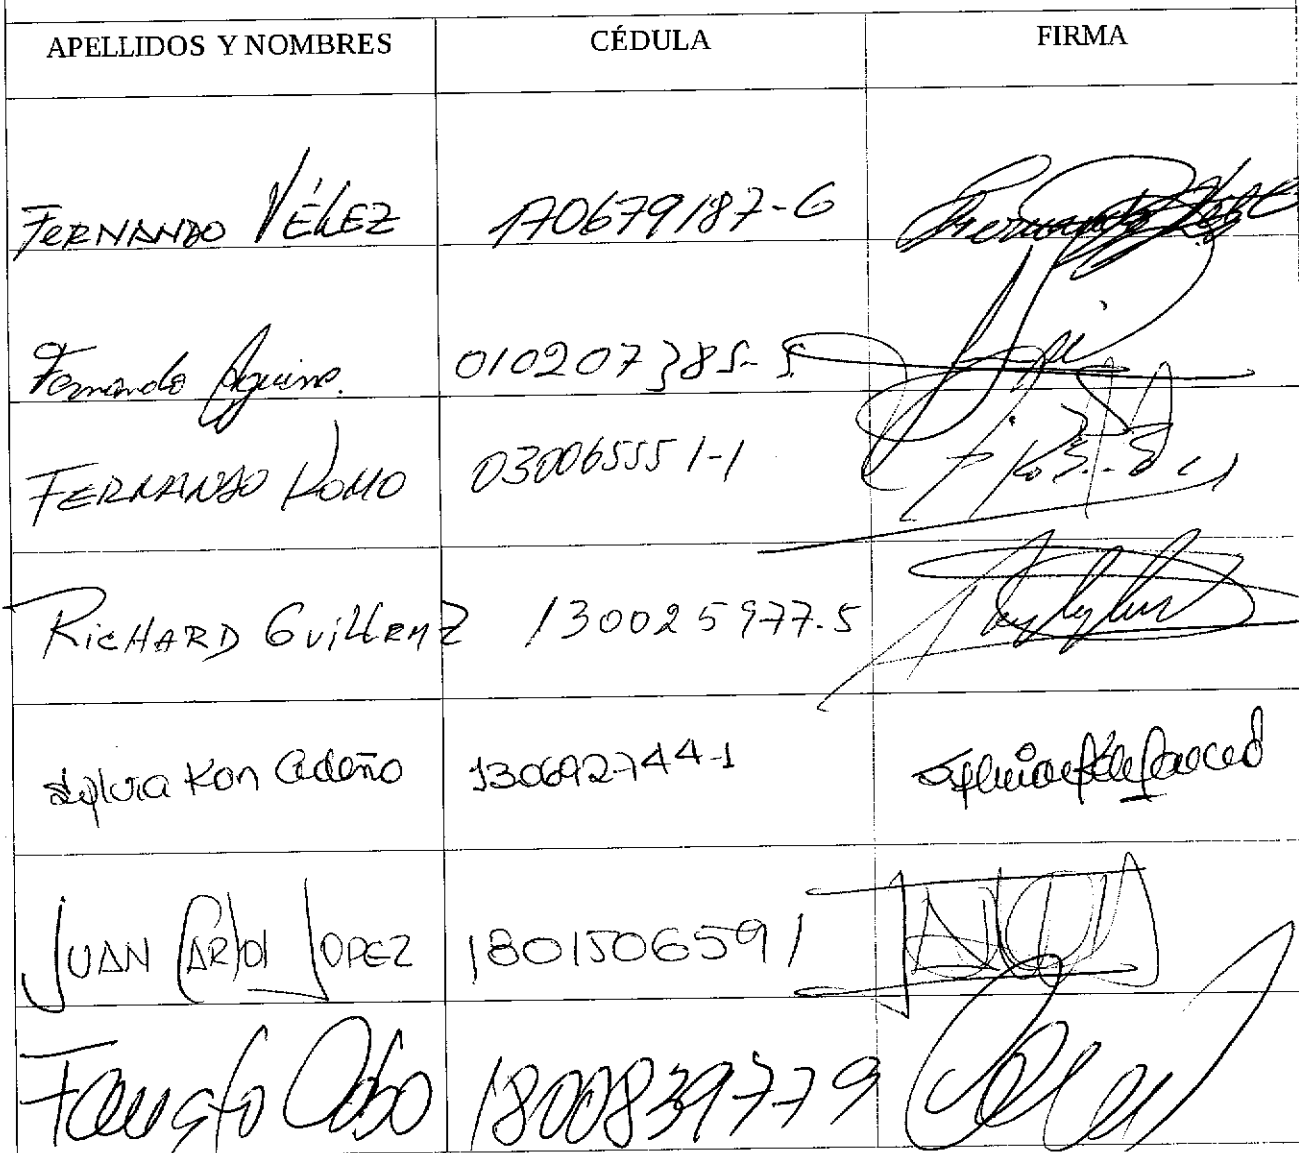 APELLIDOS Y NOMBRES CÉDULA FIRMA
FERNANDO VÉLEZ 170679187-6
Fernando Aguirre. 010207385-5
FERNANDO ROMO 030065551-1
RICHARD GUILLEM Z 130025977-5
Sylvia Kon Cedeño 130692744-1
JUAN CARLOS LOPEZ 1801506591
Fausto Cobo 1800839779